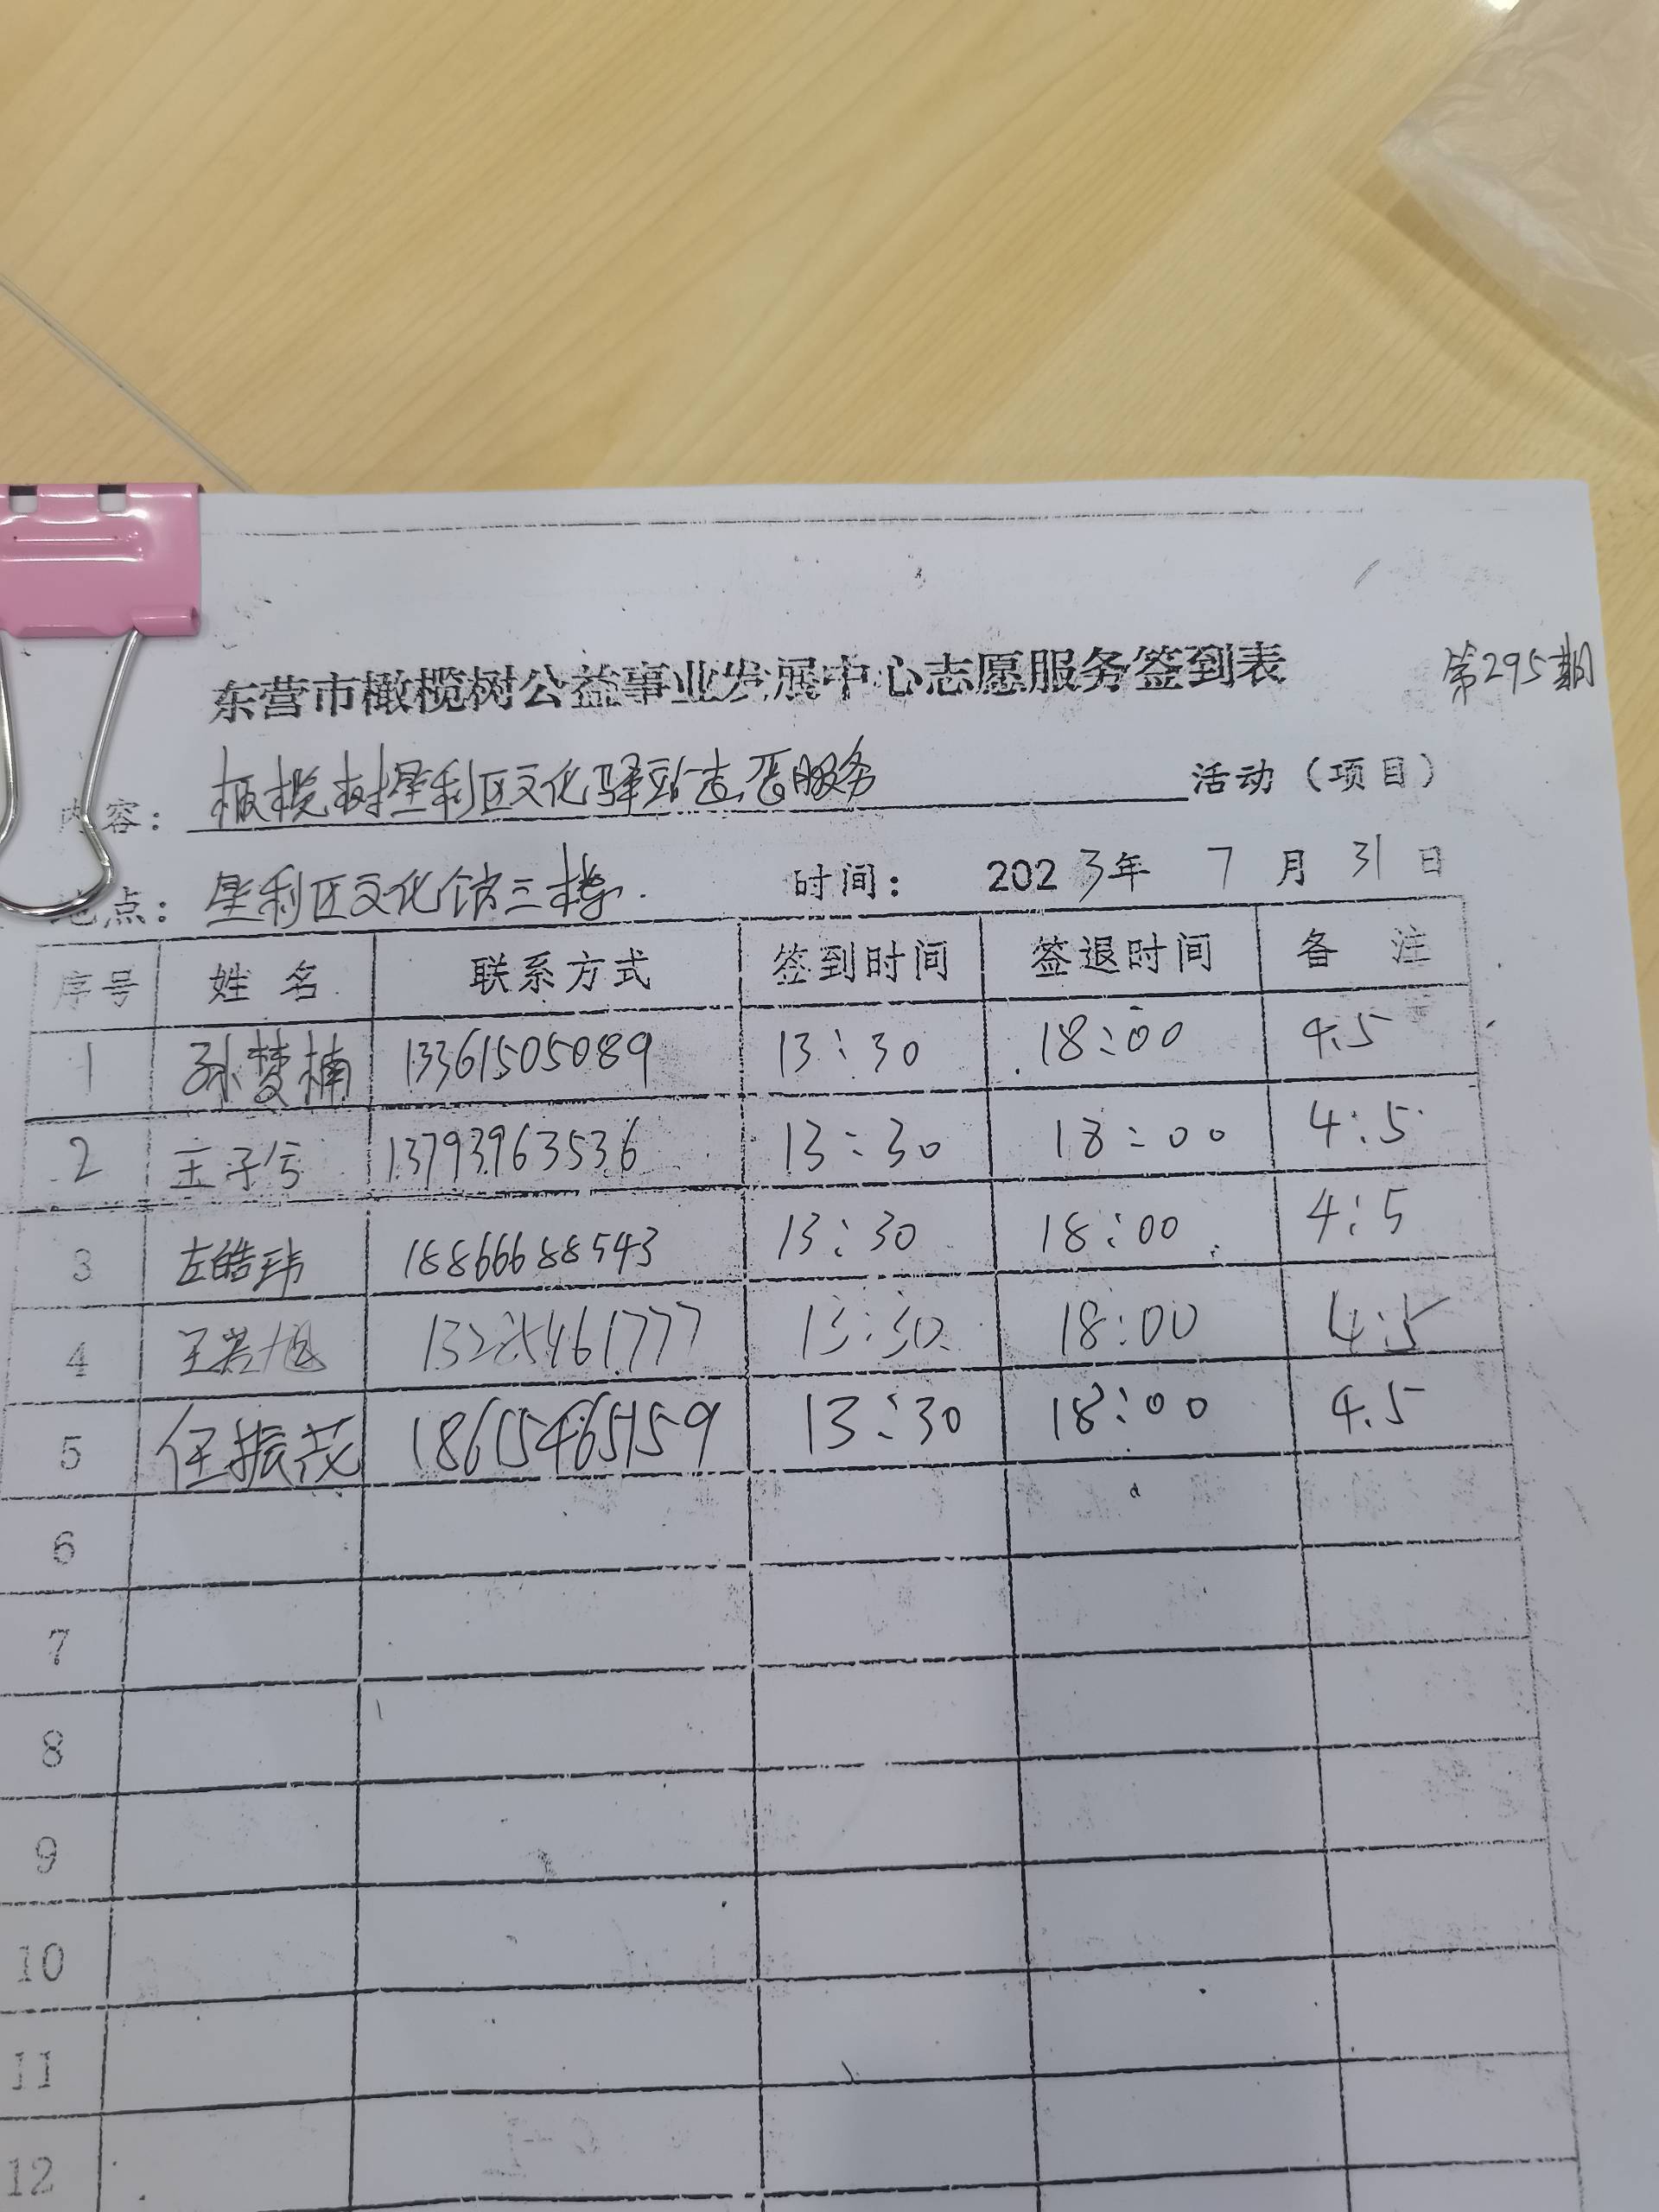 东营市橄榄树公益事业发展中心志愿服务签到表 第295期
内容：橄榄树垦利区文化驿站志愿服务 活动（项目）
地点：垦利区文化馆三楼 时间： 2023年 7 月 31 日
序号 姓 名 联系方式 签到时间 签退时间 备 注
1 孙梦楠 13361505089 13:30 18:00 4.5
2 王子兮 13793963536 13:30 18:00 4:5
3 左皓玮 18866688543 13:30 18:00 4:5
4 王若旭 13225461777 13:30 18:00 4:5
5 任振茂 18615465159 13:30 18:00 4.5
6
7
8
9
10
11
12